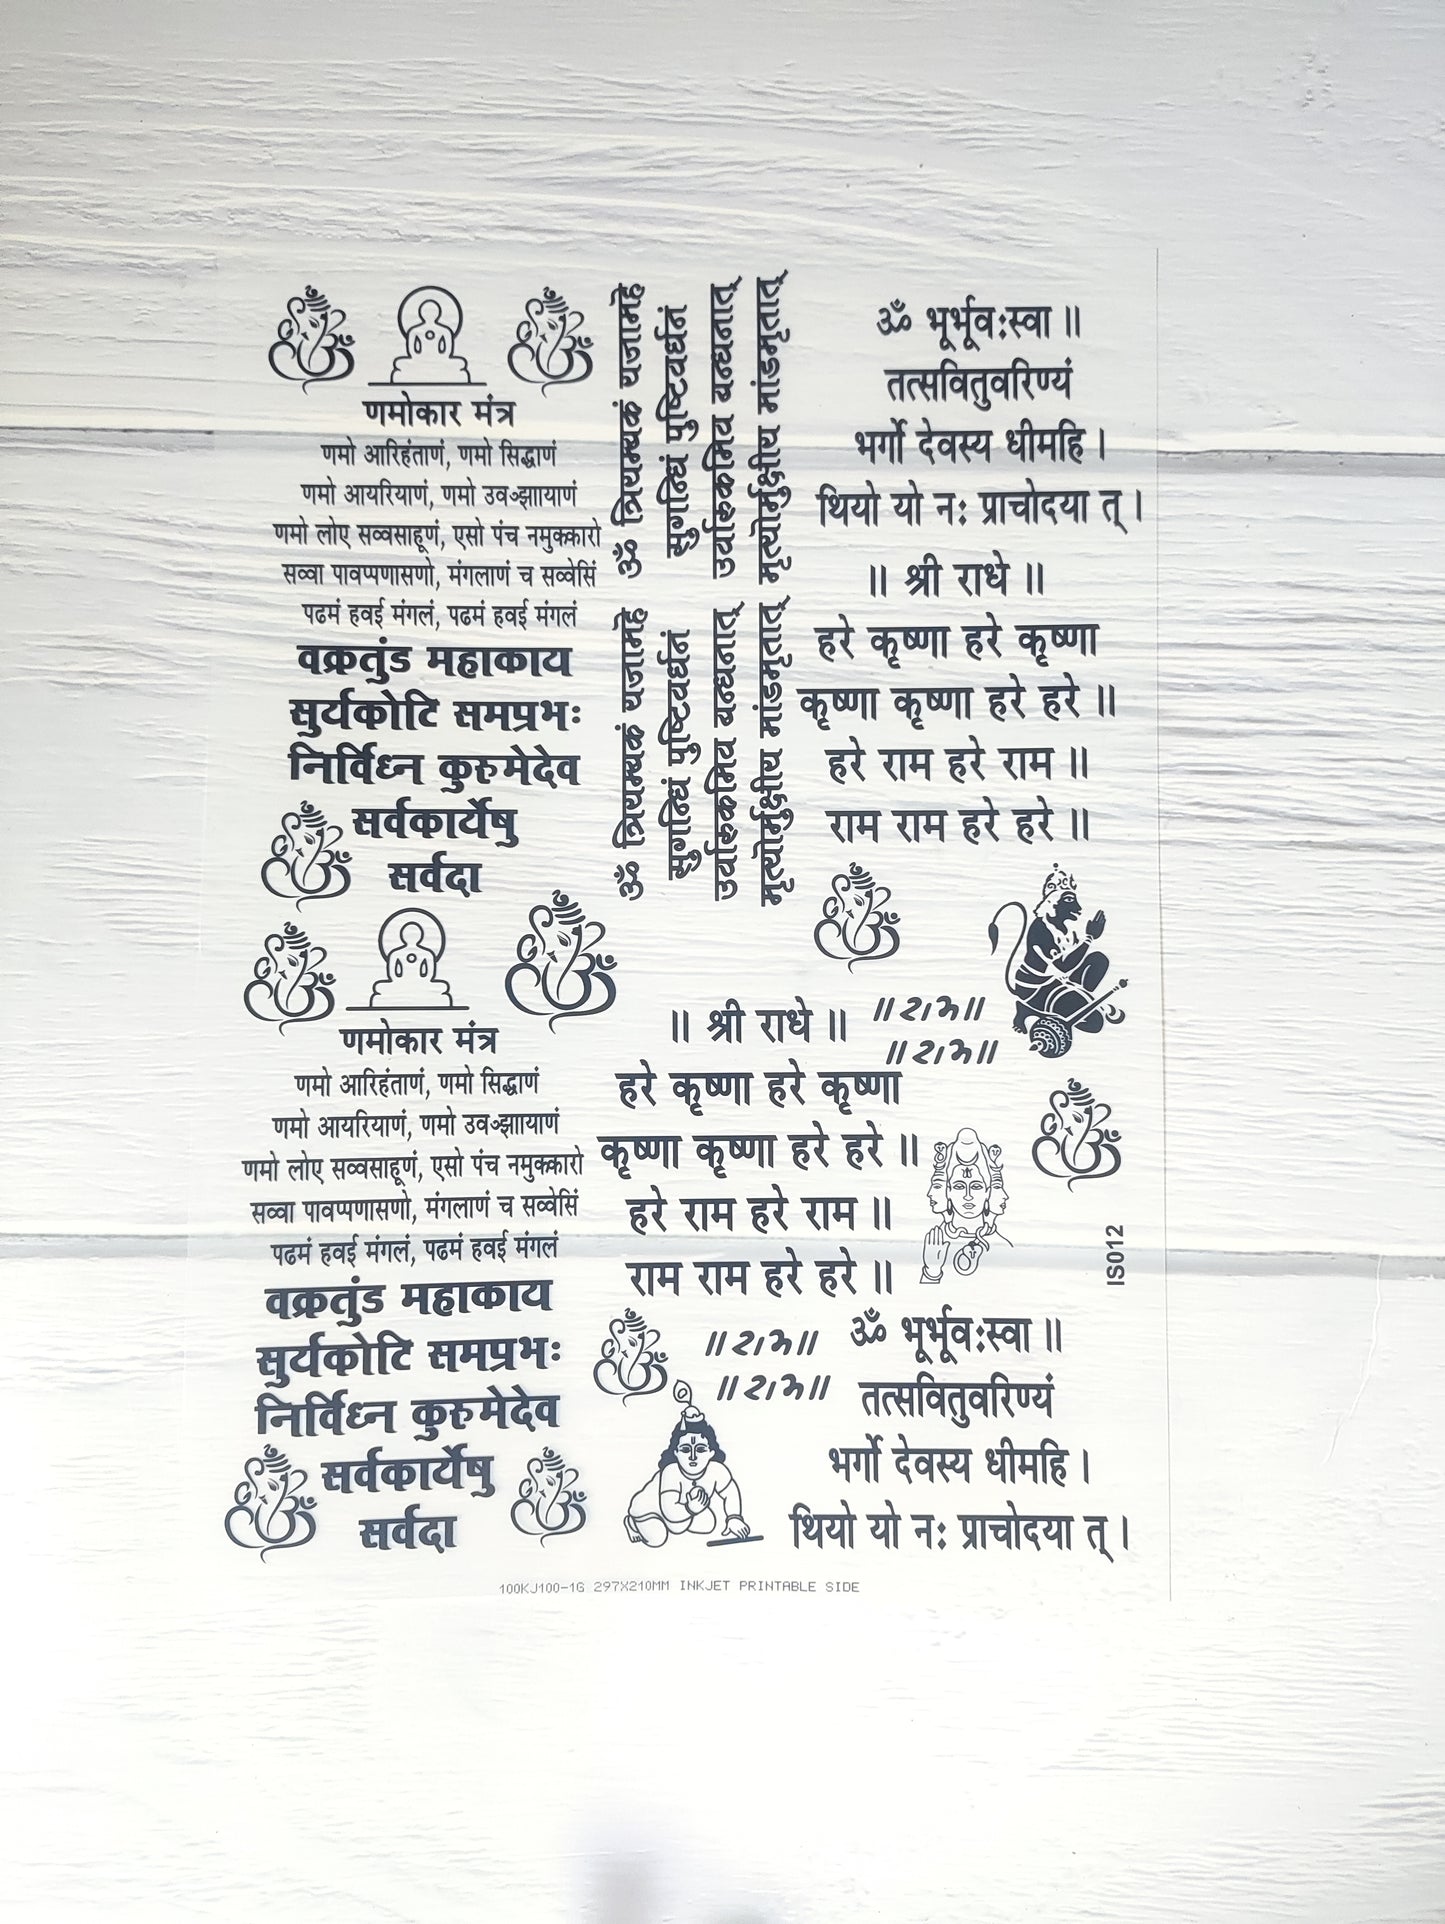 णमोकार मंत्र
णमो आरिहंताणं, णमो सिद्धाणं
णमो आयरियाणं, णमो उवज्झाायाणं
णमो लोए सव्वसाहूणं, एसो पंच नमुक्कारो
सव्वा पावप्पणासणो, मंगलाणं च सव्वेसिं
पढमं हवई मंगलं, पढमं हवई मंगलं
वक्रतुंड महाकाय
सुर्यकोटि समप्रभः
निर्विध्न कुरुमेदेव
सर्वकार्येषु
सर्वदा
ॐ त्रियम्यकं यजामहे
सुगन्धिं पुष्टिवर्धनं
उर्वारुकमिव बन्धनात्
मृत्योर्मुक्षीय मांडमृतात्
ॐ त्रियम्यकं यजामहे
सुगन्धिं पुष्टिवर्धनं
उर्वारुकमिव बन्धनात्
मृत्योर्मुक्षीय मांडमृतात्
ॐ भूर्भूवःस्वा ॥
तत्सवितुवरिण्यं
भर्गो देवस्य धीमहि ।
थियो यो नः प्राचोदया त् ।
॥ श्री राधे ॥
हरे कृष्णा हरे कृष्णा
कृष्णा कृष्णा हरे हरे ॥
हरे राम हरे राम ॥
राम राम हरे हरे ॥
णमोकार मंत्र
णमो आरिहंताणं, णमो सिद्धाणं
णमो आयरियाणं, णमो उवज्झाायाणं
णमो लोए सव्वसाहूणं, एसो पंच नमुक्कारो
सव्वा पावप्पणासणो, मंगलाणं च सव्वेसिं
पढमं हवई मंगलं, पढमं हवई मंगलं
वक्रतुंड महाकाय
सुर्यकोटि समप्रभः
निर्विध्न कुरुमेदेव
सर्वकार्येषु
सर्वदा
॥ श्री राधे ॥
हरे कृष्णा हरे कृष्णा
कृष्णा कृष्णा हरे हरे ॥
हरे राम हरे राम ॥
राम राम हरे हरे ॥
॥राम॥
॥राम॥
IS012
॥राम॥
॥राम॥
ॐ भूर्भूवःस्वा ॥
तत्सवितुवरिण्यं
भर्गो देवस्य धीमहि ।
थियो यो नः प्राचोदया त् ।
100KJ100-1G 297X210MM INKJET PRINTABLE SIDE